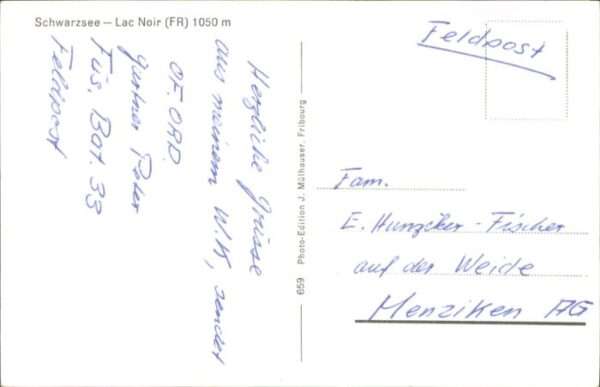 Schwarzsee — Lac Noir (FR) 1050 m
Herzliche Grüsse
aus meinem W.K, sendet
OF. ORD.
Gartner Peter
Füs. Bat. 33
Feldpost
659 Photo-Edition J. Mülhauser, Fribourg
Feldpost
Fam.
E. Hunziker-Fischer
auf der Weide
Menziken AG